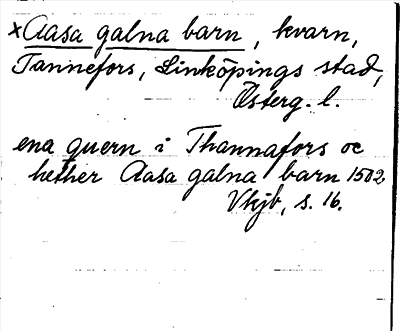 ×Aasa galna barn, kvarn,
Tannefors, Linköpings stad,
Österg. l.
ena quern i Thannafors oc
hether Aasa galna barn 1502
Vkjb, s. 16.